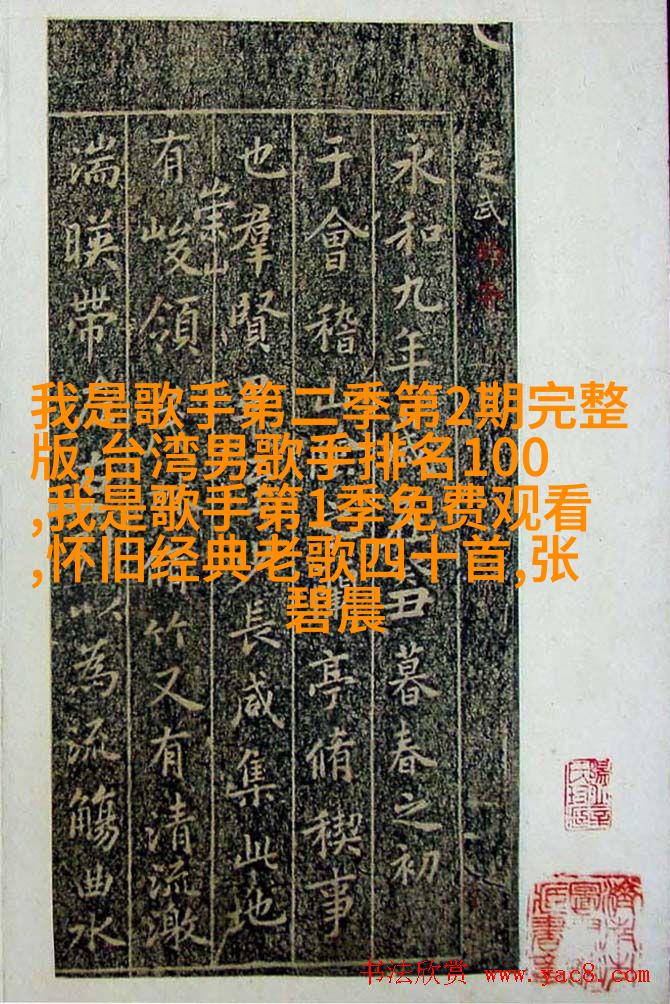 定武
永和九年丑暮春之初
于會稽山亭脩稧事
也羣賢長咸集此地
有崇山峻領竹又有清流激
湍暎帶以為流觴曲水
我是歌手第二季第2期完整
版,台湾男歌手排名100
,我是歌手第1季免费观看
,怀旧经典老歌四十首,张
碧晨
书法欣赏 www.yac8.com